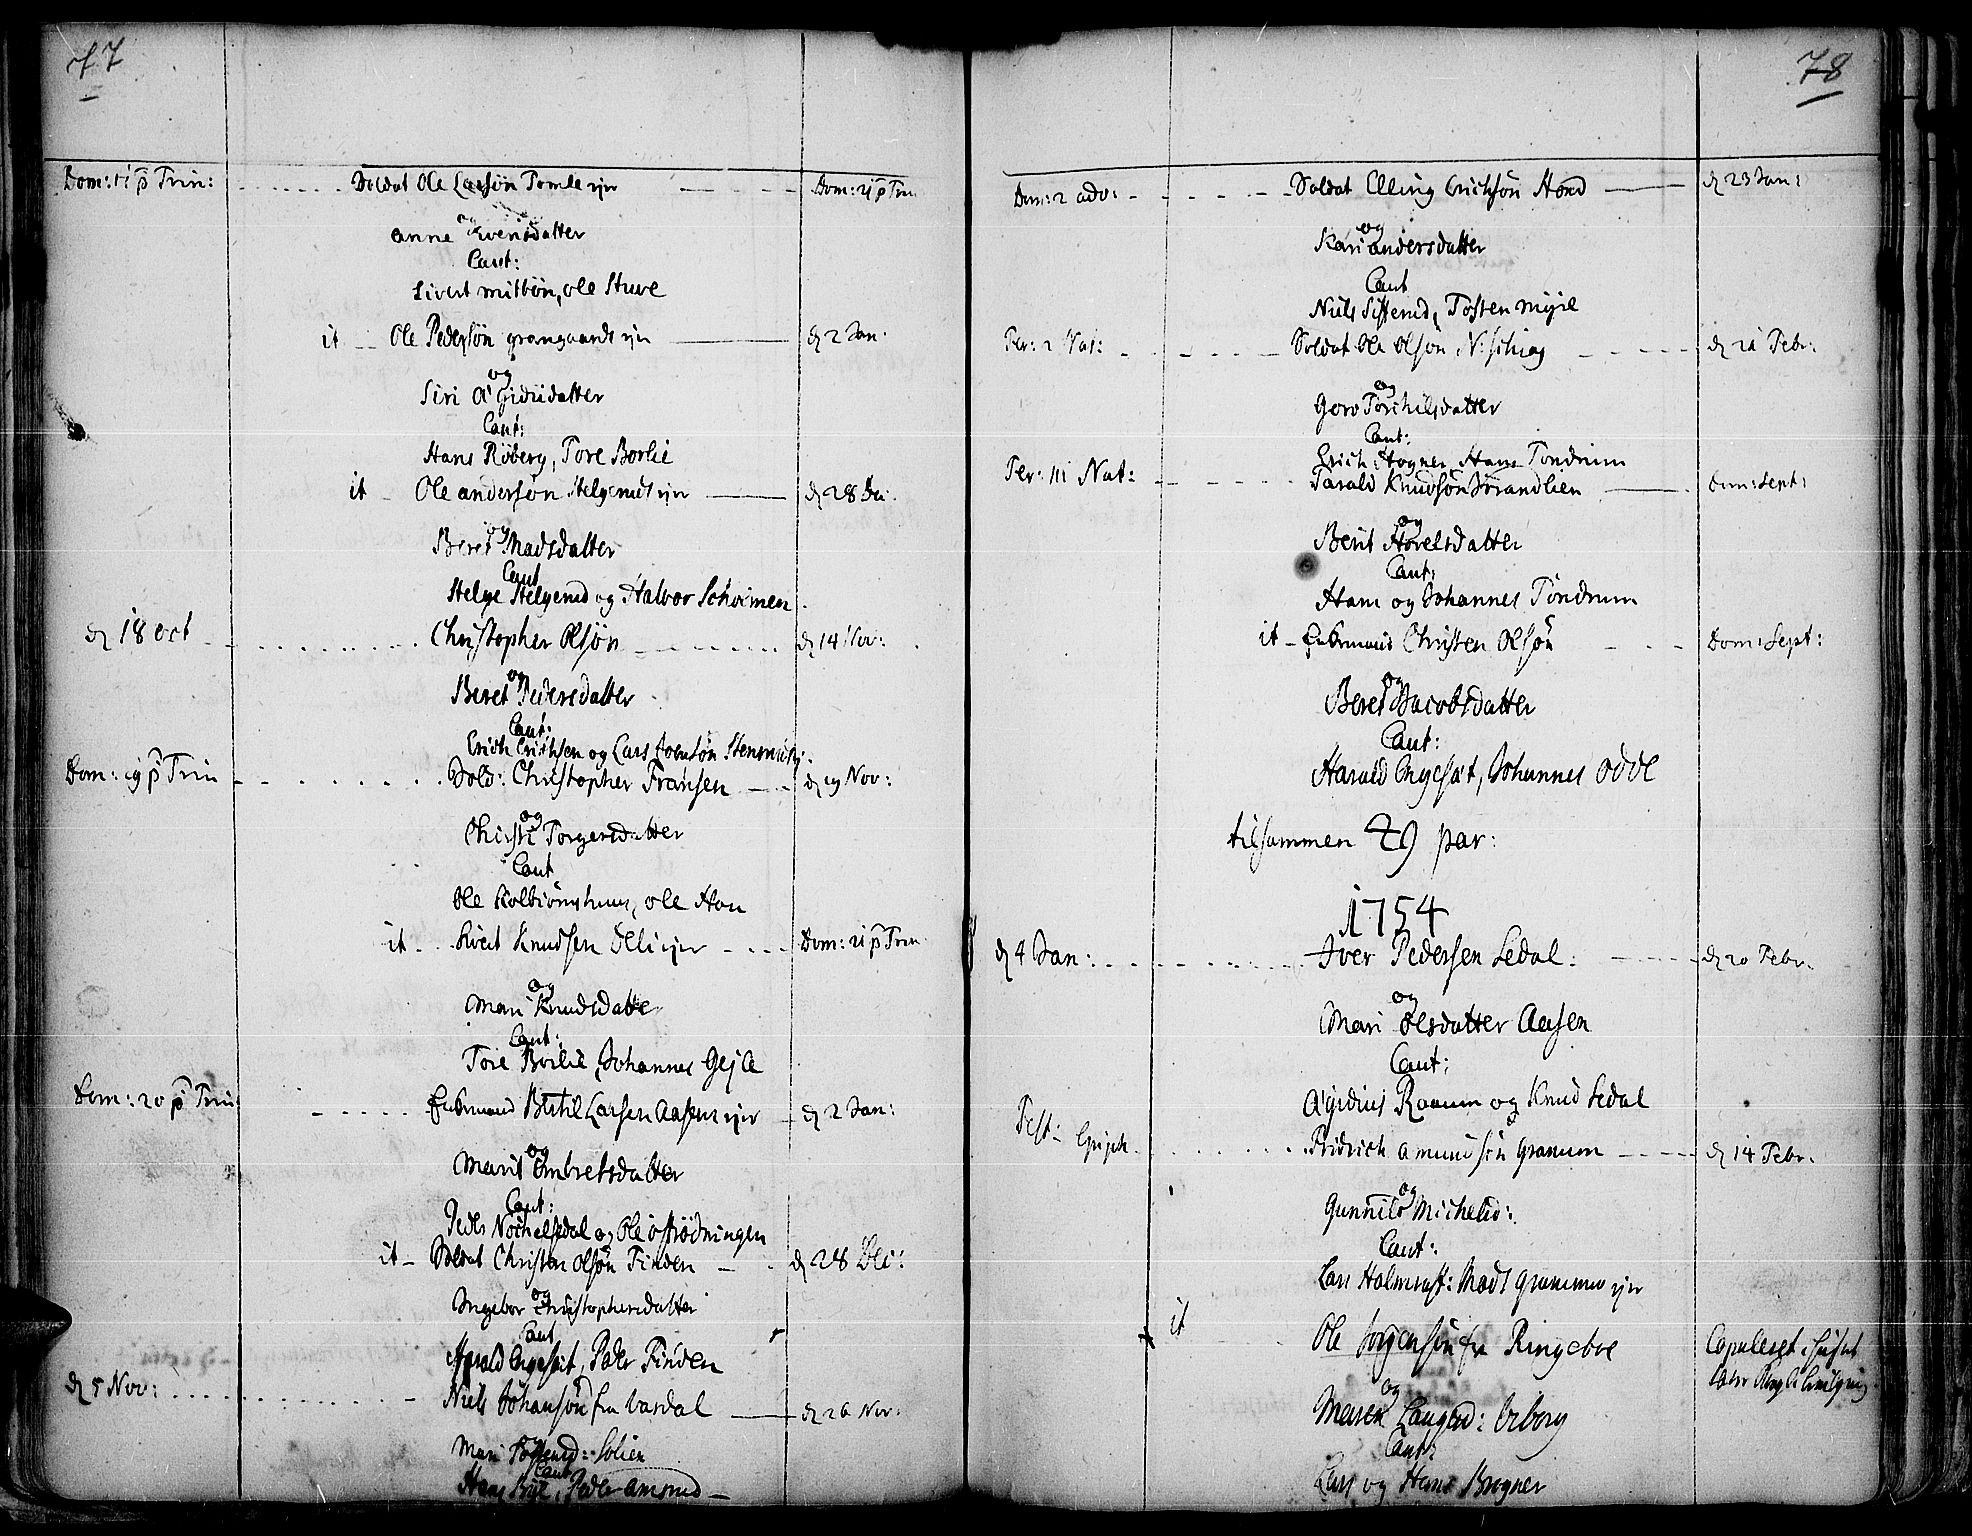 77
Dom: 17 p Trin: Soldat Ole Larsøn Tomle ejer Dom: 21 p Trin
og
Anne Evensdatter
Caut:
Sivert Mitbøn, Ole Stuve
it Ole Pedersøn Grangaards ejer d 2 Jan:
og
Siri Ægidiidatter
Caut:
Hans Røberg, Tore Borlie
it Ole Andersøn Helgestd ejer d 28 De:
og
Beret Madsdatter
Caut
Helge Helgestd og Halvor Schoimen
d 18 Oct Christopher Olsøn d 14 Nov:
og
Beret Pedersdatter
Caut:
Erich Erichsen og Lars Joensøn
Dom: 19 p Trin Sold: Christopher Fransen d 19 Nov:
og
Christi Torgersdatter
Caut
Ole Kolbiønshuus, Ole Hon
it Sivert Knudsen ejer Dom: 21 p Trin
og
Mari Knudsdatte
Caut:
Tore Borlie, Johannes Gejle
Dom: 20 p Trin: Enkemand Bertil Larsen Aasens ejer d 2 Jan:
og
Marit Embretsdatter
Caut:
Peder og Ole Østrødningen
it Soldat Christen Olsøn Finden d 28 Dec:
og
Ingebor Christophersdatter
Caut
Harald Engesæt, Peder Finden
d 5 Nov: Niels Johansøn fra Vardal d 26 Nov:
og
Mari Tostensd: Solien
Caut
Hans, Peder Amsrud
78
Dom: 2 adv: Soldat Elling Erichsøn Hond d 23 Jan:
og
Kari Andersdatter
Caut
Niels, Tosten Myre
Fer: 2 Nat: Soldat Ole Olsøn N: Schiag d 21 Febr:
og
Goro Torchilsdatter
Caut:
Erich Hogner, Hans Tondrum
Fer: III Nat: Tarald Knudsøn Strandlien Dom: Sept:
og
Berit Hovelsdatter
Caut:
Hans og Johannes Tondrum
it Enkemand Christen Olsøn Dom: Sept:
og
Beret Jacobsdatter
Caut:
Harald Engesæt, Johannes Odde
tilsammen 29 par:
1754
d 4 Jan: Iver Pedersen Ledal d 20 Febr.
og
Mari Olsdatter Aasen
Caut:
Ægidius Raaum og Knud Ledal
Fest: Epiph. Fridrich Amundsøn Granum d 14 Febr.
og
Gunnild Michelsd:
Caut:
Lars Holmrast: Mads Grammes ejer
it Ole Jørgensøn fr Ringeboe Copuleret i huset
og
Maren Laugesd: Viborg
Caut:
Lars og Hans Brogner